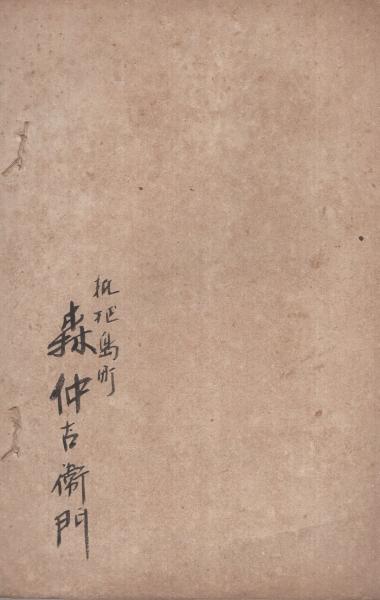 枇杷島町
森仲右衛門